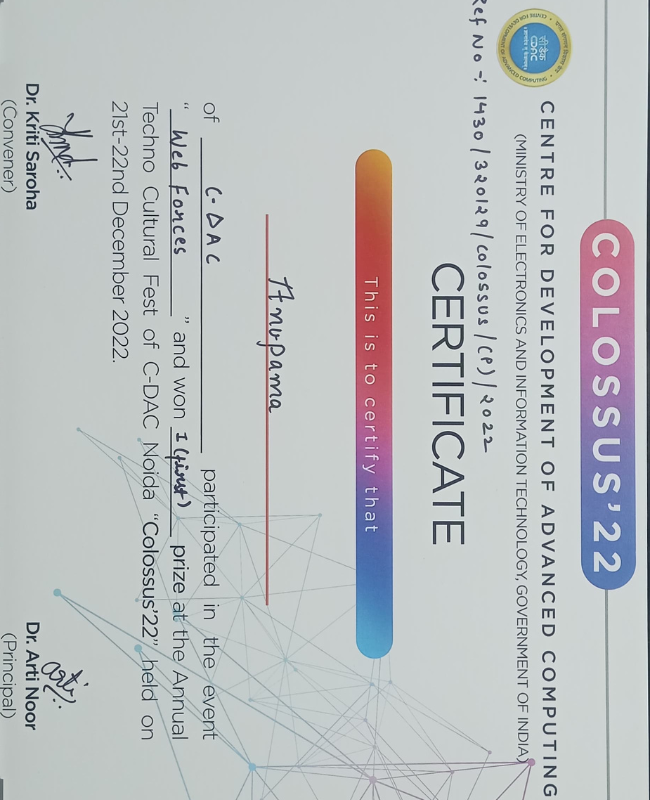 COLOSSUS'22
CENTRE FOR DEVELOPMENT OF ADVANCED COMPUTING
(MINISTRY OF ELECTRONICS AND INFORMATION TECHNOLOGY, GOVERNMENT OF INDIA)
सी डैक
CDAC
Ref No :- 1430/320129/Colossus/(P)/2022
CERTIFICATE
This is to certify that
Anupama
of C-DAC participated in the event
“ Web Forces ” and won 1 (first) prize at the Annual
Techno Cultural Fest of C-DAC Noida “Colossus'22” held on
21st-22nd December 2022.
Dr. Kriti Saroha
(Convener)
Dr. Arti Noor
(Principal)